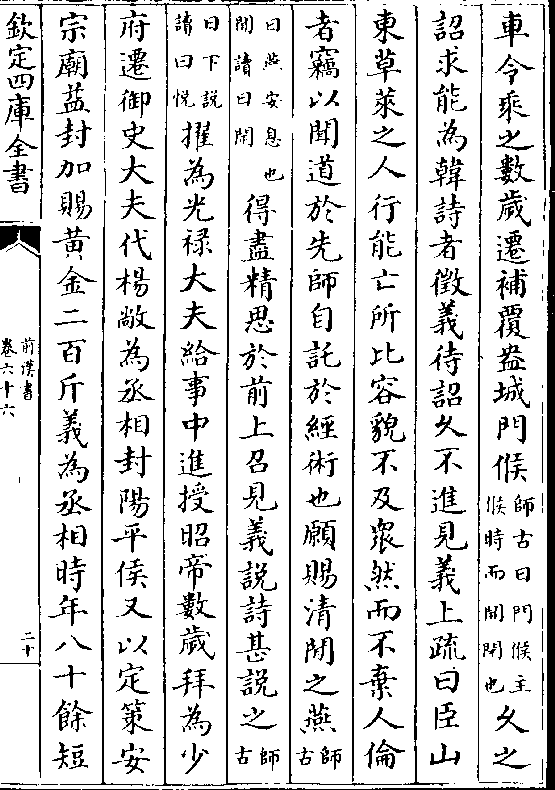 車令乘之數歲遷補覆盎城門候師古曰門候主候時而開閉也久之
詔求能為韓詩者徵義待詔久不進見義上疏曰臣山
東草萊之人行能亡所比容貌不及衆然而不棄人倫
者竊以聞道於先師自託於經術也願賜清閒之燕師古
曰燕安息也閒讀曰閑得盡精思於前上召見義說詩甚說之師古
曰下說讀曰悅擢為光禄大夫給事中進授昭帝數歲拜為少
府遷御史大夫代楊敞為丞相封陽平侯又以定策安
宗廟益封加賜黃金二百斤義為丞相時年八十餘短
欽定四庫全書
前漢書
卷六十六
二十